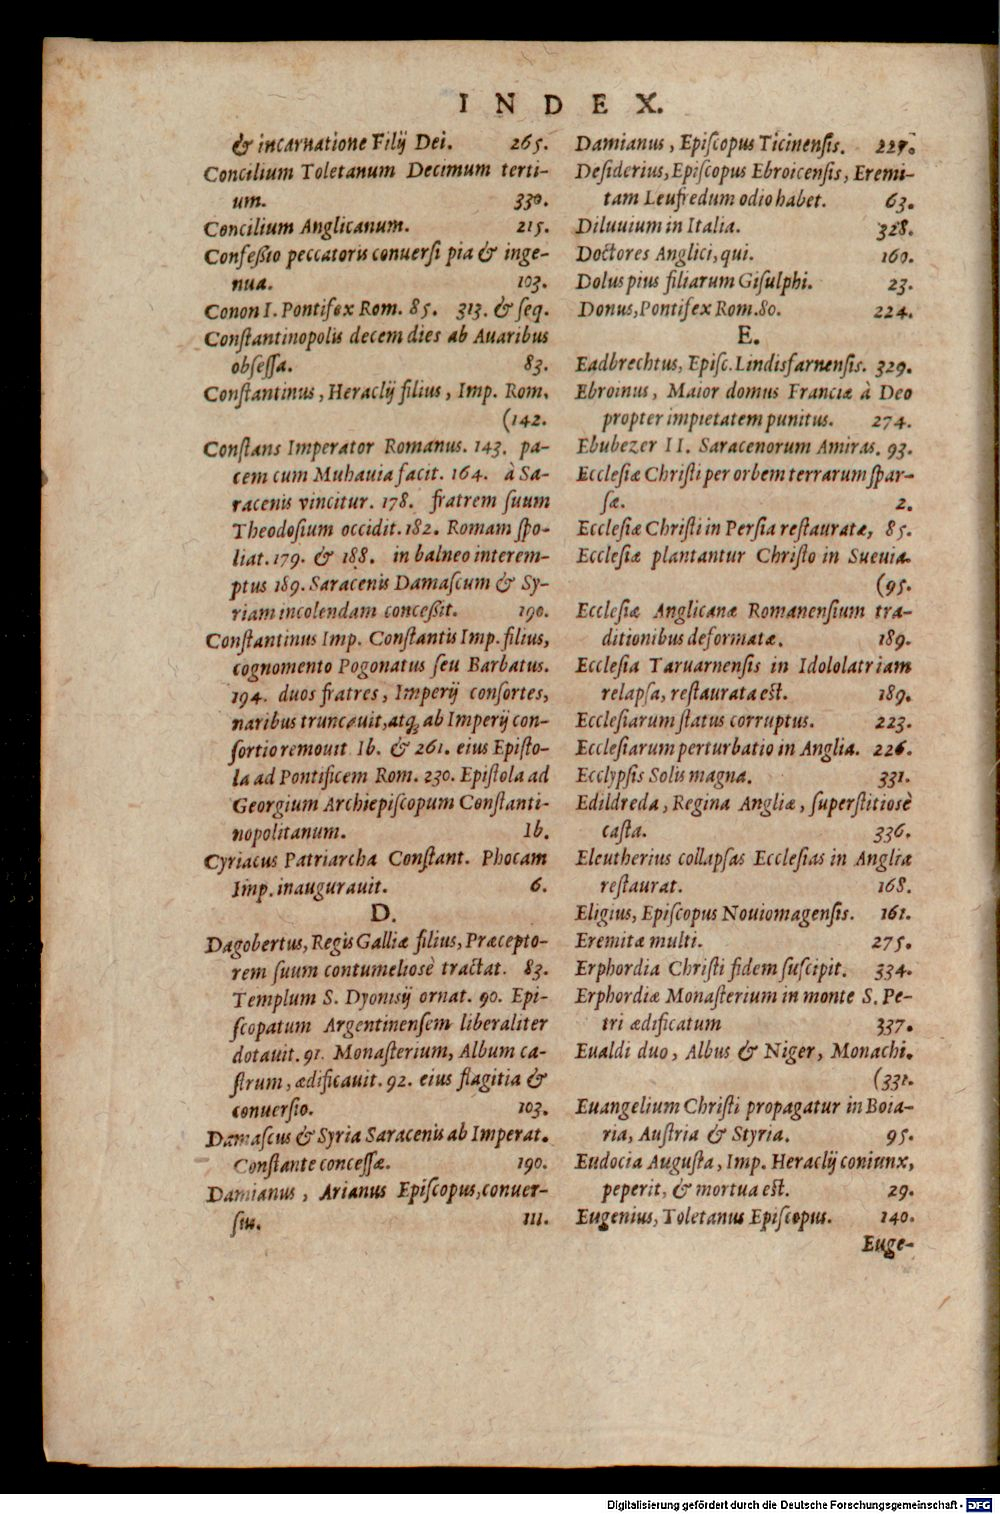 INDEX.
& incarnatione Filij Dei. 265.
Concilium Toletanum Decimum terti-
um. 330.
Concilium Anglicanum. 215.
Confeßio peccatoris conuersi pia & inge-
nua. 103.
Conon I. Pontifex Rom. 85. 313. & seq.
Constantinopolis decem dies ab Auaribus
obsessa. 83.
Constantinus, Heraclij filius, Imp. Rom.
(142.
Constans Imperator Romanus. 143. pa-
cem cum Muhauia facit. 164. à Sa-
racenis vincitur. 178. fratrem suum
Theodosium occidit. 182. Romam spo-
liat. 179. & 188. in balneo interem-
ptus 189. Saracenis Damascum & Sy-
riam incolendam conceßit. 190.
Constantinus Imp. Constantis Imp. filius,
cognomento Pogonatus seu Barbatus.
194. duos fratres, Imperij consortes,
naribus truncauit, atq; ab Imperij con-
sortio remouit Ib. & 261. eius Episto-
la ad Pontificem Rom. 230. Epistola ad
Georgium Archiepiscopum Constanti-
nopolitanum. Ib.
Cyriacus Patriarcha Constant. Phocam
Imp. inaugurauit. 6.
D.
Dagobertus, Regis Galliæ filius, Præcepto-
rem suum contumeliosè tractat. 83.
Templum S. Dyonisij ornat. 90. Epi-
scopatum Argentinensem liberaliter
dotauit. 91. Monasterium, Album ca-
strum, ædificauit. 92. eius flagitia &
conuersio. 103.
Damascus & Syria Saracenis ab Imperat.
Constante concessæ. 190.
Damianus, Arianus Episcopus, conuer-
sus. 111.
Damianus, Episcopus Ticinensis.
Desiderius, Episcopus Ebroicensis, Eremi-
tam Leufredum odio habet. 63.
Diluuium in Italia. 328.
Doctores Anglici, qui. 160.
Dolus pius filiarum Gisulphi. 23.
Donus, Pontifex Rom. 80. 224.
E.
Eadbrechtus, Episc. Lindisfarnensis. 329.
Ebroinus, Maior domus Franciæ à Deo
propter impietatem punitus. 274.
Ebubezer II. Saracenorum Amiras. 93.
Ecclesiæ Christi per orbem terrarum spar-
sæ. 2.
Ecclesiæ Christi in Persia restauratæ, 85.
Ecclesiæ plantantur Christo in Sueuia.
(95.
Ecclesiæ Anglicanæ Romanensium tra-
ditionibus deformatæ. 189.
Ecclesia Taruarnensis in Idololatriam
relapsa, restaurata est. 189.
Ecclesiarum status corruptus. 223.
Ecclesiarum perturbatio in Anglia. 226.
Ecclypsis Solis magna. 331.
Edildreda, Regina Angliæ, superstitiosè
casta. 336.
Eleutherius collapsas Ecclesias in Anglia
restaurat. 168.
Eligius, Episcopus Nouiomagensis. 161.
Eremitæ multi. 275.
Erphordia Christi fidem suscipit. 334.
Erphordiæ Monasterium in monte S. Pe-
tri ædificatum 337.
Eualdi duo, Albus & Niger, Monachi.
(331.
Euangelium Christi propagatur in Boia-
ria, Austria & Styria. 95.
Eudocia Augusta, Imp. Heraclij coniunx,
peperit, & mortua est. 29.
Eugenius, Toletanus Episcopus. 140.
Euge-
Digitalisierung gefördert durch die Deutsche Forschungsgemeinschaft - DFG